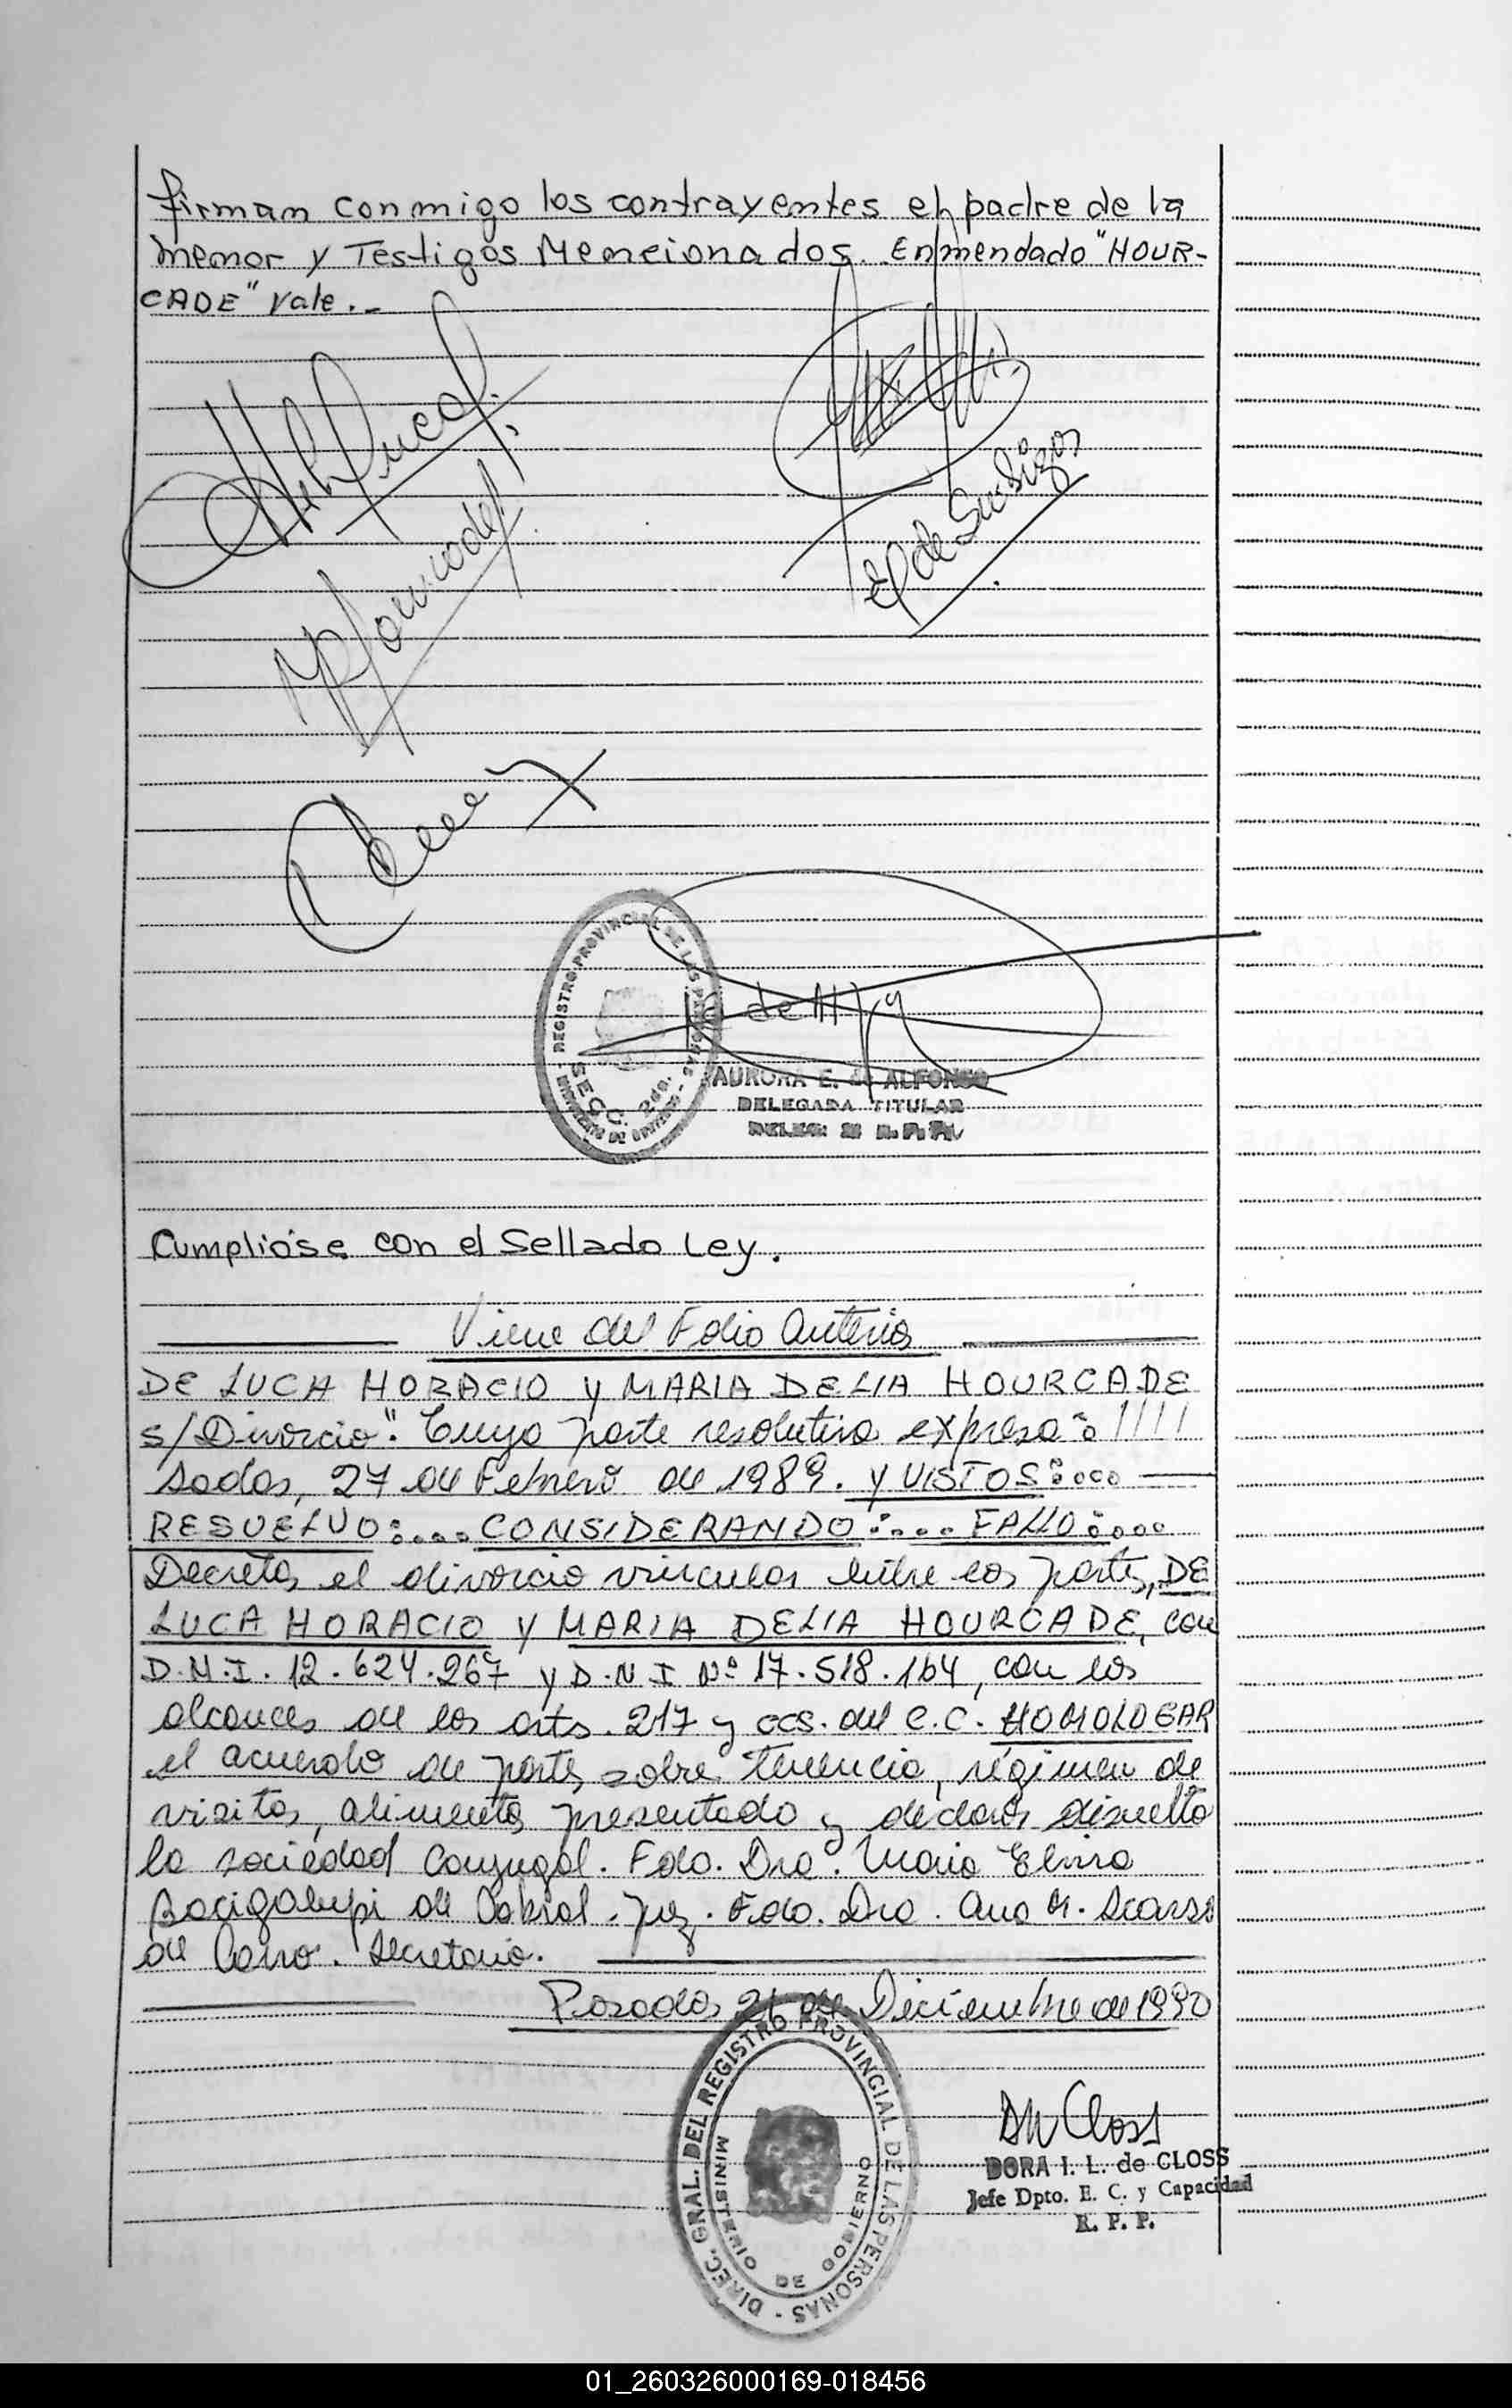 firman conmigo los contrayentes el padre de la
menor y Testigos Mencionados. Enmendado "HOUR-
CADE" vale.-
REGISTRO PROVINCIAL DE LAS PERSONAS
SECC. 2da.
AURORA E. de ALFONSO
DELEGADA TITULAR
Cumplióse con el Sellado Ley.
Viene del Folio Anterior
DE LUCA HORACIO y MARIA DELIA HOURCADE
s/Divorcio". Cuya parte resolutiva expresa:
sadas, 27 de Febrero de 1989. y VISTOS:....
RESUELVO:.... CONSIDERANDO:.... FALLO:....
Decretar el divorcio vincular entre las partes, DE
LUCA HORACIO y MARIA DELIA HOURCADE, con
D.N.I. 12.624.267 y D.N.I Nº 17.518.164, con los
alcances de los arts. 217 y ccs. del C.C. HOMOLOGAR
el acuerdo de partes sobre tenencia, régimen de
visitas, alimentos presentado y declarar disuelta
la sociedad conyugal. Fdo. Dra. Maria Elvira
Bacigalupi de Cabral. Juez. Fdo. Dra. Ana M.
de Secretaria.
Posadas 21 de Diciembre de 1990
DIREC. GRAL. DEL REGISTRO PROVINCIAL DE LAS PERSONAS
MINISTERIO DE GOBIERNO
DORA I. L. de CLOSS
Jefe Dpto. E. C. y Capacidad
R. P. P.
01_260326000169-018456